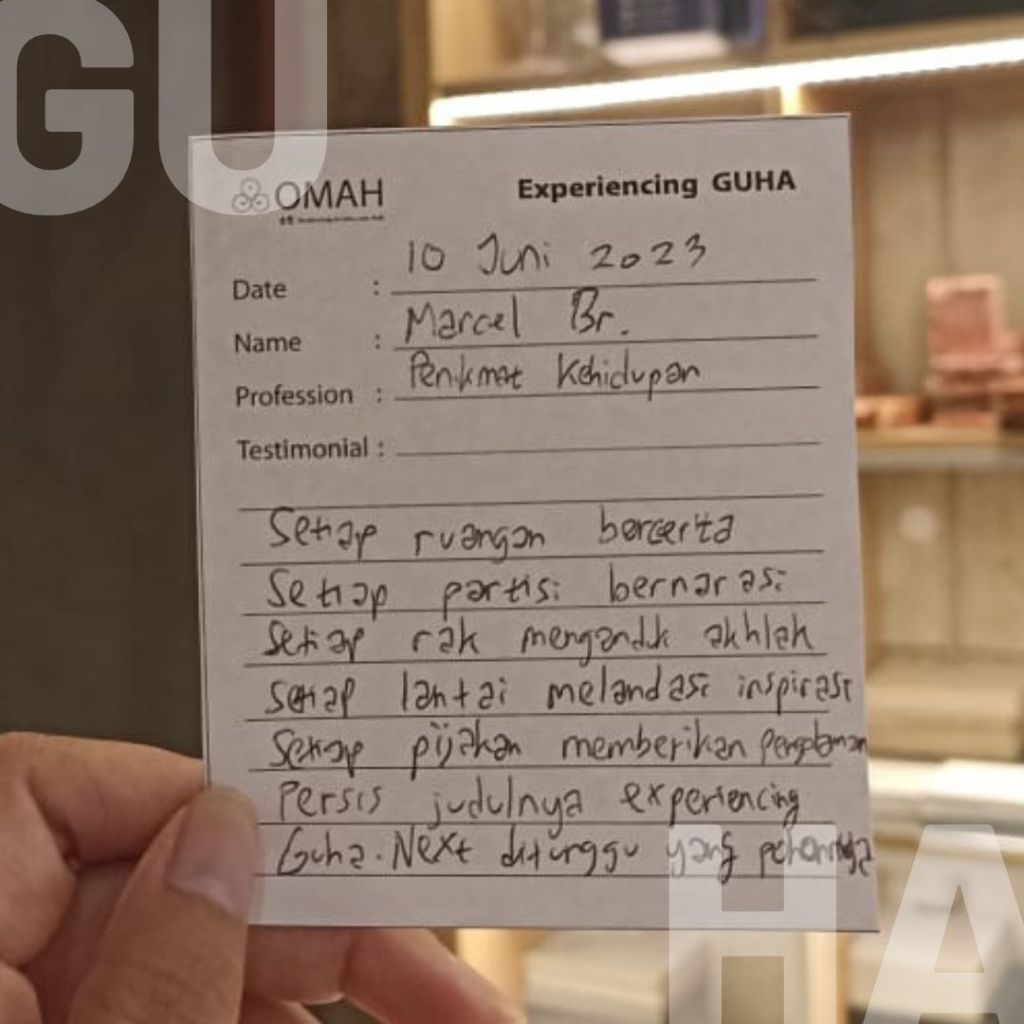 GU
OMAH
Experiencing GUHA
Date : 10 Juni 2023
Name : Marcel Br.
Profession : Penikmat Kehidupan
Testimonial :
Setiap ruangan bercerita
Setiap partisi bernarasi
Setiap rak mengandk akhlak
Setiap lantai melandasi inspirasi
Setiap pijakan memberikan
Persis judulnya experiencing
Guha. Next ditunggu yang
HA